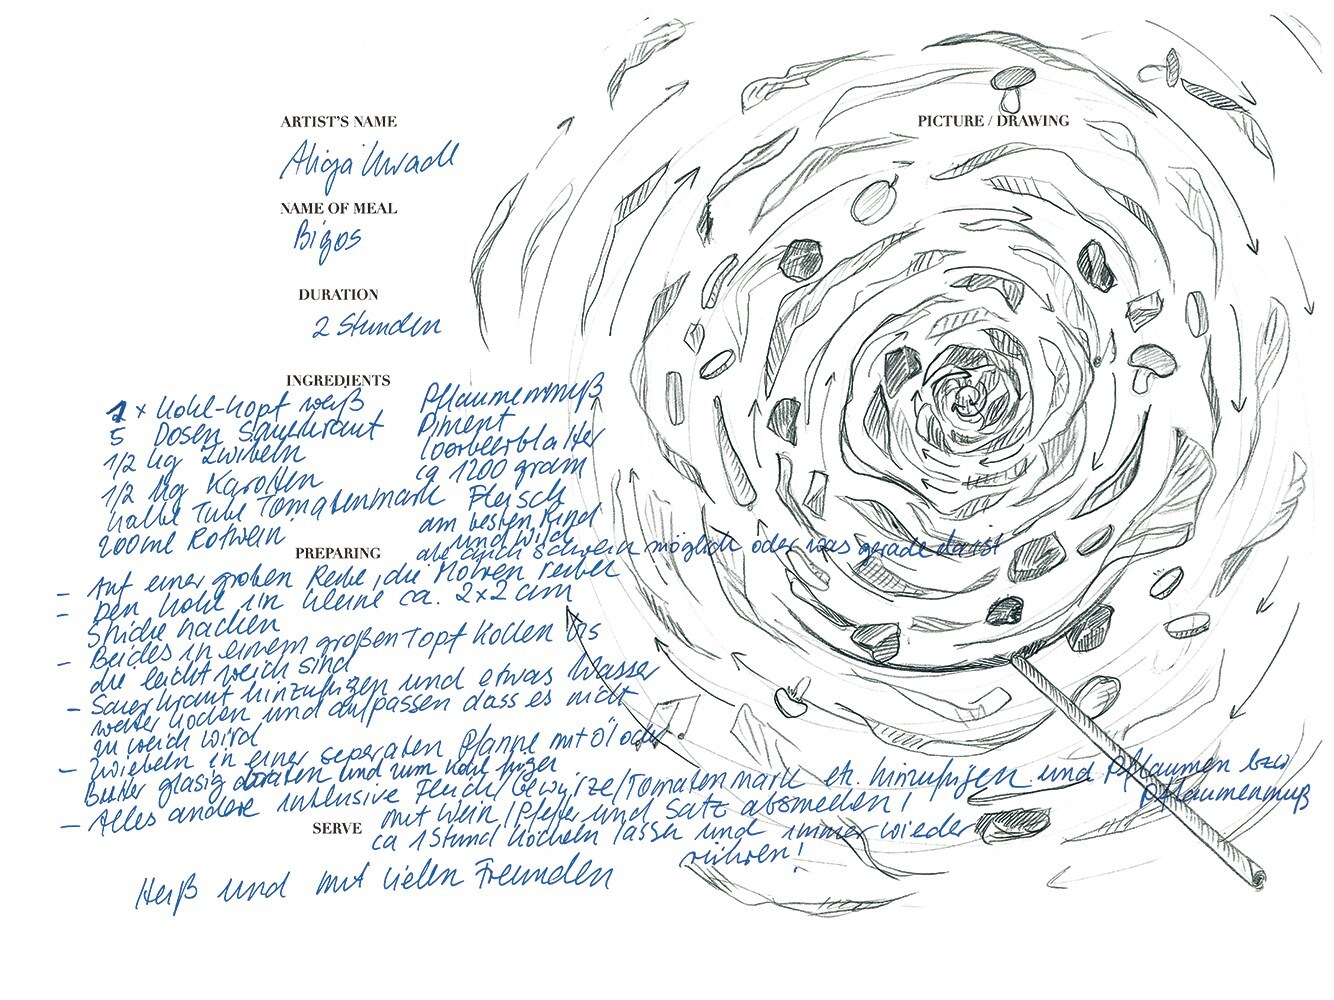 ARTIST'S NAME
Alicja Kwade
NAME OF MEAL
Bigos
DURATION
2 Stunden
INGREDIENTS
1 x Kohl-Kopf weiß
5 Dosen Sauerkraut
1/2 kg Zwibeln
1/2 kg Karotten
halbe Tube Tomatenmark
200ml Rotwein
Pflaumenmuß
Piment
Loorbeerblätter
ca 1200 gram
Fleisch
am besten Rind
und Wild
aber auch Schwein möglich oder was gerade da ist
PREPARING
- Auf einer groben Reibe, die Möhren reiben
- Den Kohl in kleine ca. 2x2 cm
Stücke hacken
- Beides in einem großen Topf kochen bis
die leicht weich sind
- Sauerkraut hinzufügen und etwas Wasser
weiter kochen und aufpassen dass es nicht
zu weich wird
- Zwiebeln in einer separaten Pfanne mit Öl oder
Butter glasig braten und zum Kohl fügen
- Alles andere inklusive Fleich/Gewürze/Tomatenmark etc. hinzufügen und Pflaumen bzw
Pflaumenmuß
mit Wein/Pfefer und Salz abschmecken!
ca 1 Stund köcheln lassen und immer wieder
rühren!
SERVE
Heiß und mit vielen Freunden
PICTURE / DRAWING